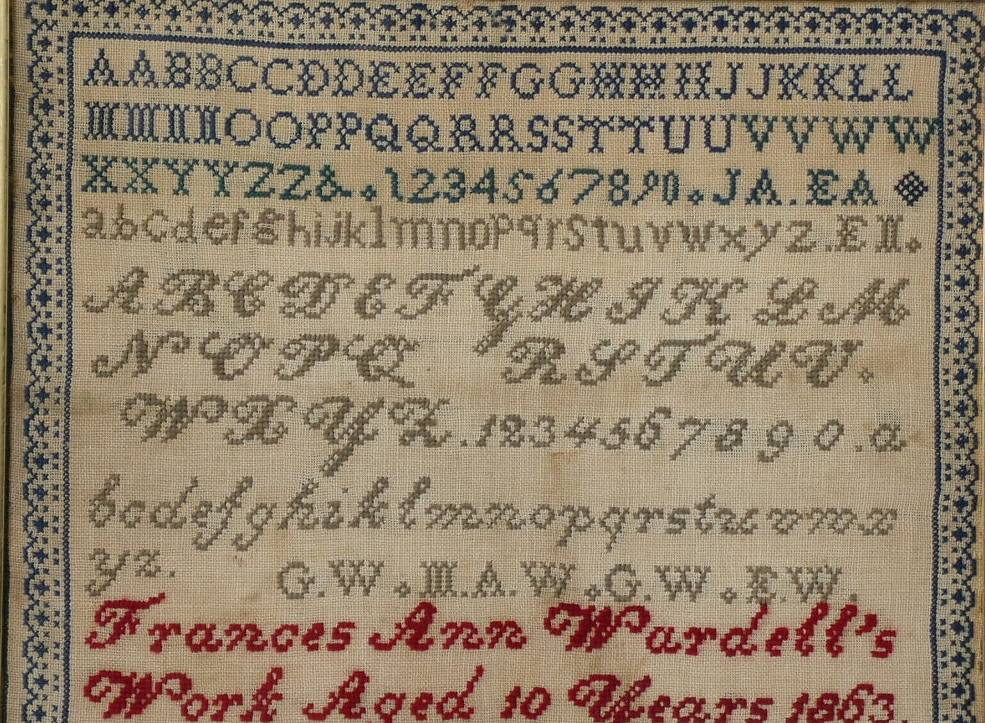 AABBCCDDEEFFGGHHHJJJKKLL
MMNNOOPPQQRRSSTTUUVVWW
XXYYZZ&.1234567890.JA.EA
abcdefghijklmnopqrstuvwxyz.EM.
ABCDEFGHIKLM
NOPQRSTUV.
WXYZ.1234567890.a
bcdefghiklmnopqrstuvwx
yz. G.W.MA.W.G.W.EW.
Frances Ann Wardell's
Work Aged 10 Years 1863